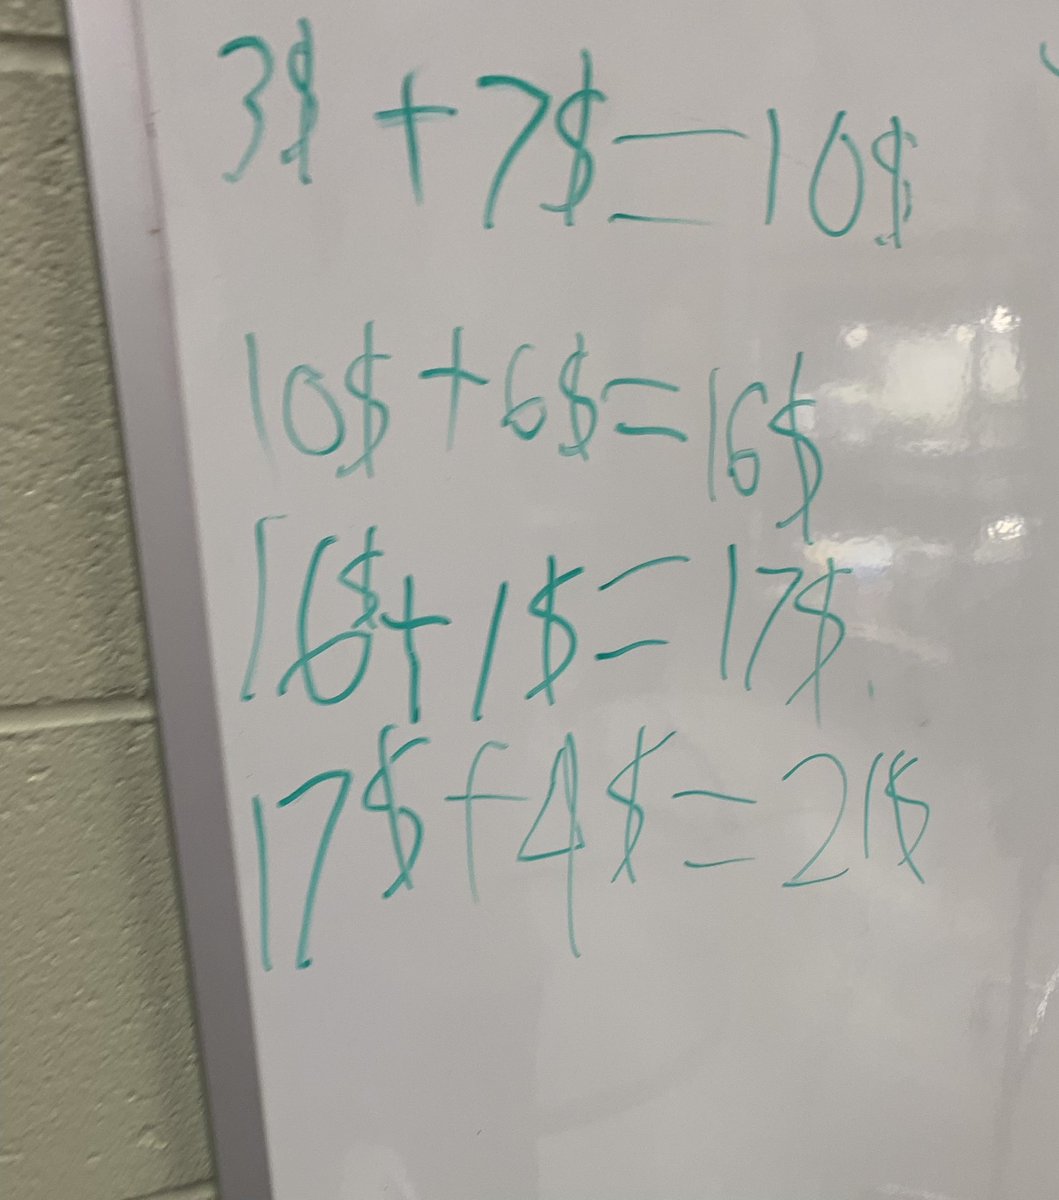 3$ + 7$ = 10$
10$ + 6$ = 16$
16$ + 1$ = 17$
17$ + 4$ = 21$